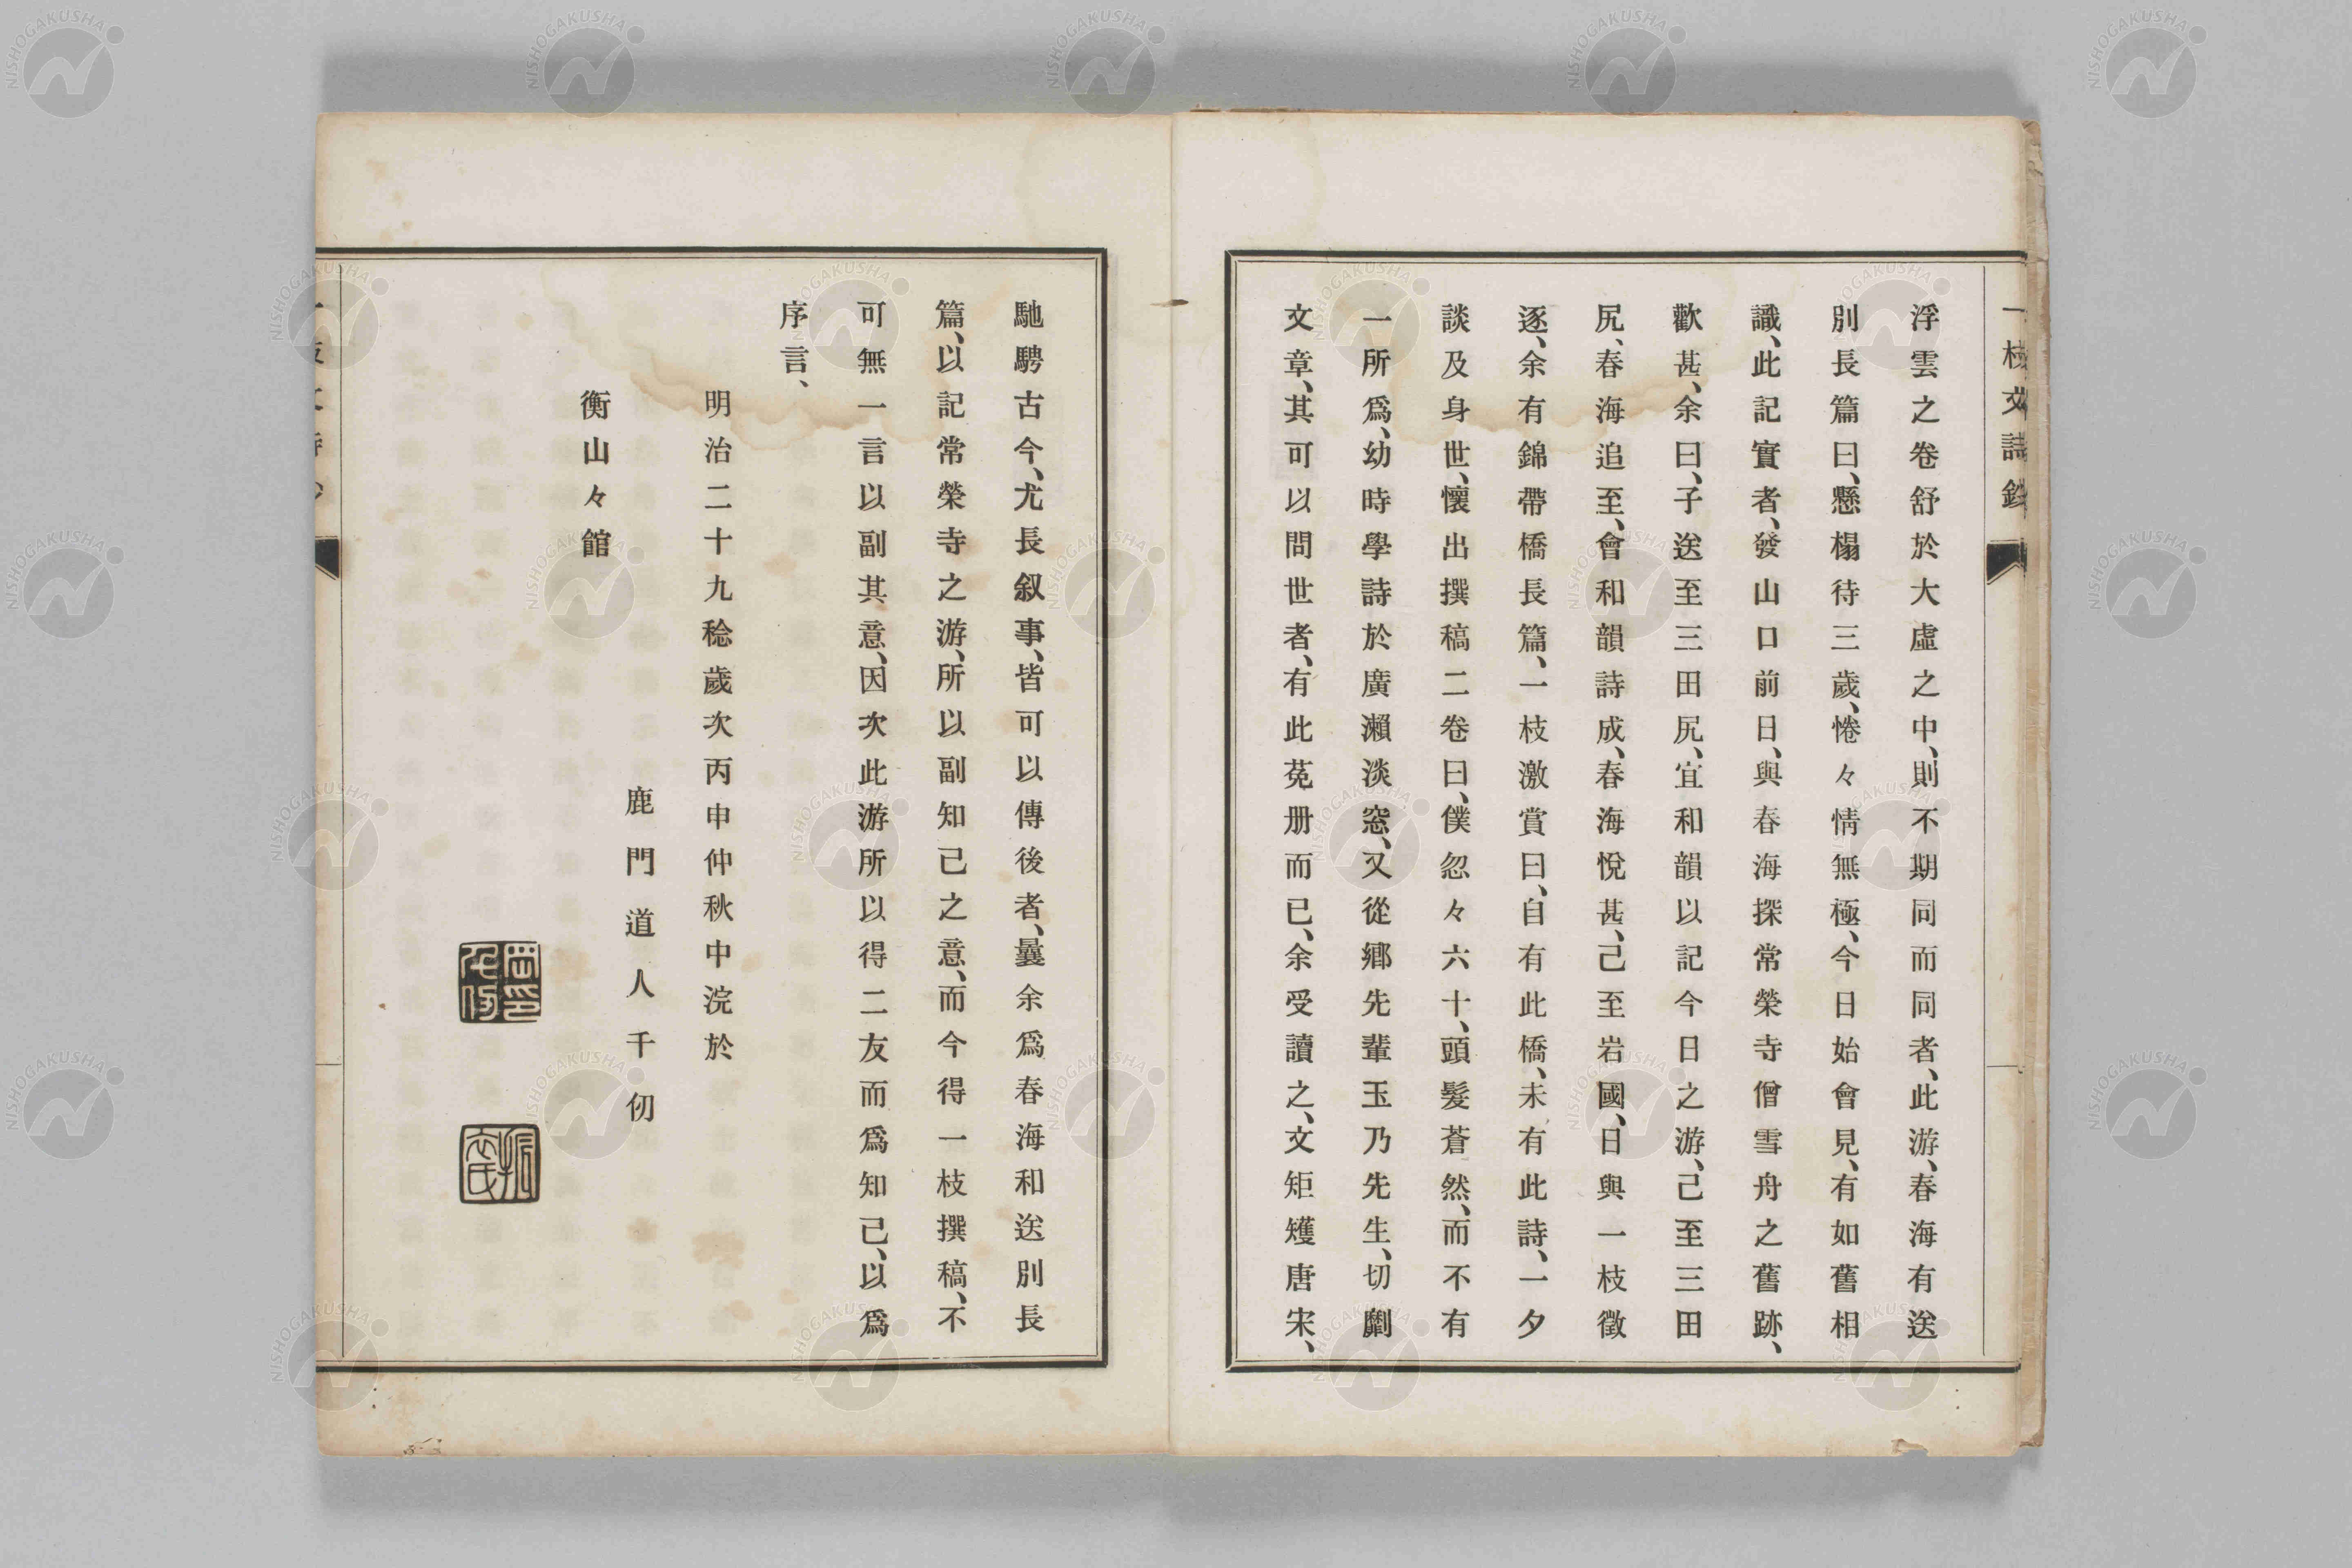 一枝文詩鈔
浮雲之卷舒於大虛之中、則不期同而同者、此游、春海有送
別長篇曰、懸榻待三歲、惓々情無極、今日始會見、有如舊相
識、此記實者、發山口前日、與春海探常榮寺僧雪舟之舊跡、
歡甚、余曰、子送至三田尻、宜和韻以記今日之游、己至三田
尻、春海追至、會和韻詩成、春海悅甚、己至岩國、日與一枝徵
逐、余有錦帶橋長篇、一枝激賞曰、自有此橋、未有此詩、一夕
談及身世、懷出撰稿二卷曰、僕忽々六十、頭髮蒼然、而不有
一所爲、幼時學詩於廣瀨淡窓、又從鄉先輩玉乃先生、切劘
文章、其可以問世者、有此菟册而已、余受讀之、文矩矱唐宋、
馳騁古今、尤長叙事、皆可以傳後者、曩余爲春海和送別長
篇、以記常榮寺之游、所以副知己之意、而今得一枝撰稿、不
可無一言以副其意、因次此游所以得二友而爲知己、以爲
序言、
明治二十九稔歲次丙申仲秋中浣於
衡山々館
鹿門道人千仞
NISHOGAKUSHA